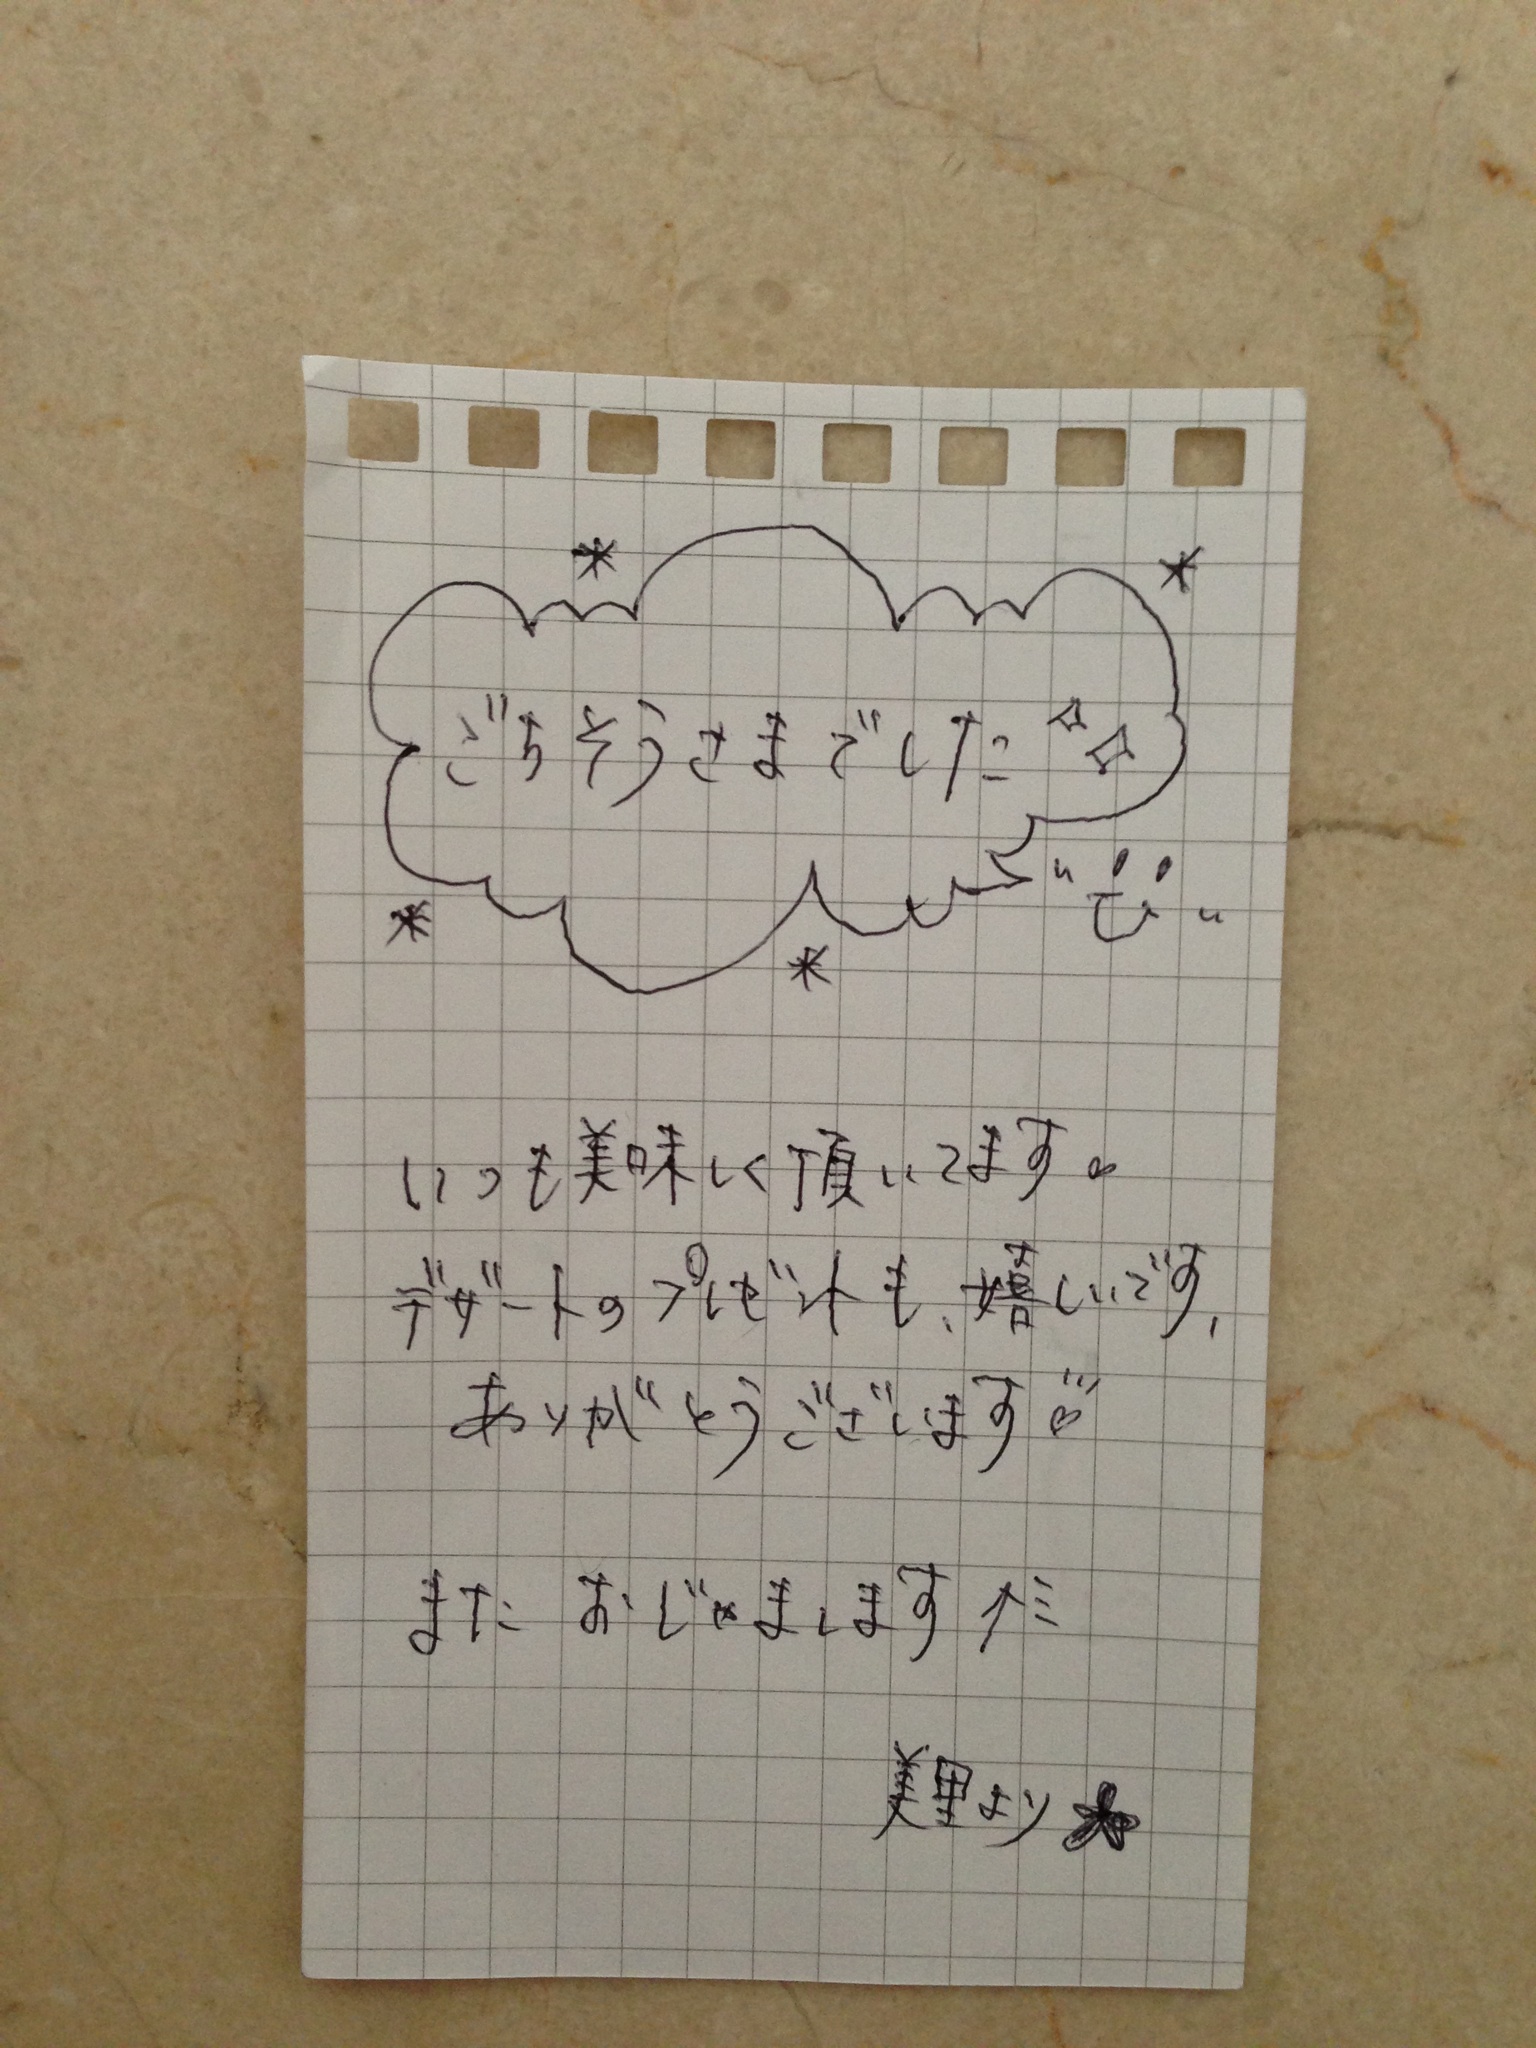 ごちそうさまでした
いつも美味しく頂いてます。
デザートのプレゼントも、嬉しいです、
ありがとうございます
また おじゃまします
美里より